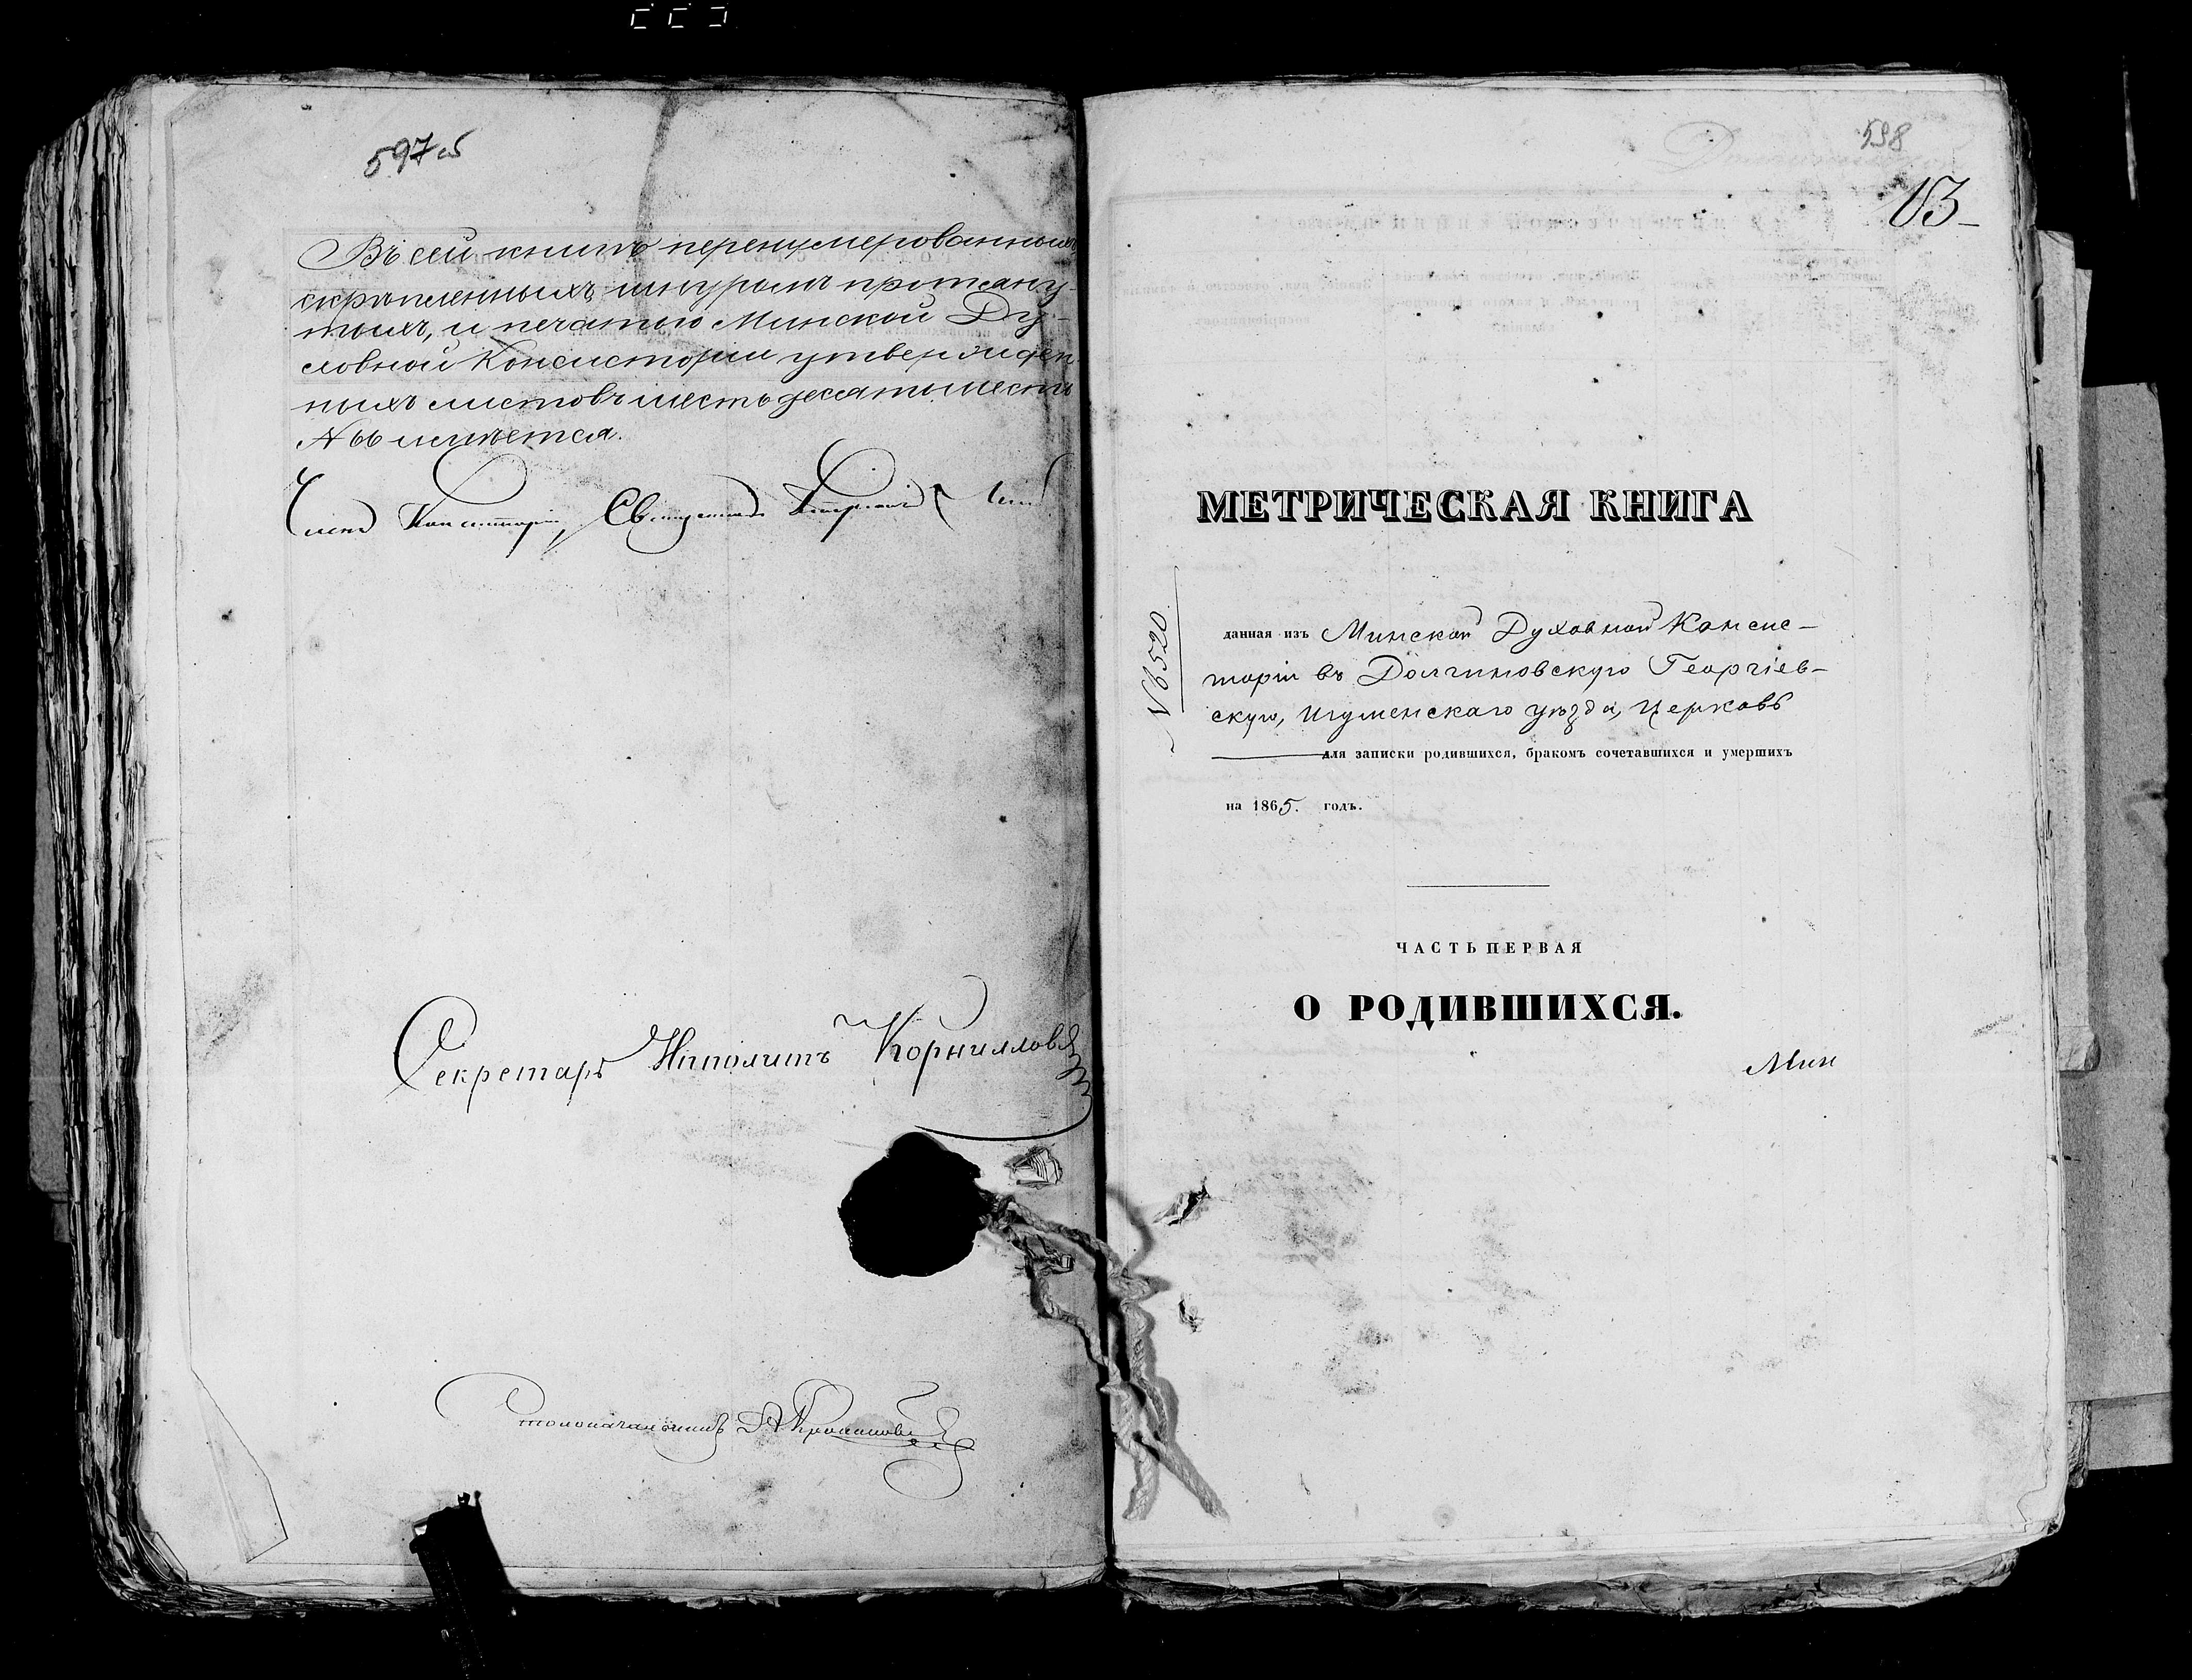 597об
Въ сей книгѣ перенумерованныхъ
скрѣпленныхъ шнуромъ протяну-
тыхъ, и печатью Минской Ду-
ховной Консисторіи утвержден-
ныхъ листовъ шестьдесятъ шесть
№ 66 имѣется.
Членъ Консисторіи, Священникъ
Секретарь Ипполитъ Корниловъ
Столоначальникъ
598
МЕТРИЧЕСКАЯ КНИГА
№ 6520.
данная изъ Минской Духовной Консис-
торіи въ Долгиновскую Георгіев-
скую, Игуменскаго уѣзда, Церковь
для записки родившихся, бракомъ сочетавшихся и умершихъ
на 1865. годъ.
ЧАСТЬ ПЕРВАЯ
О РОДИВШИХСЯ.
Мин